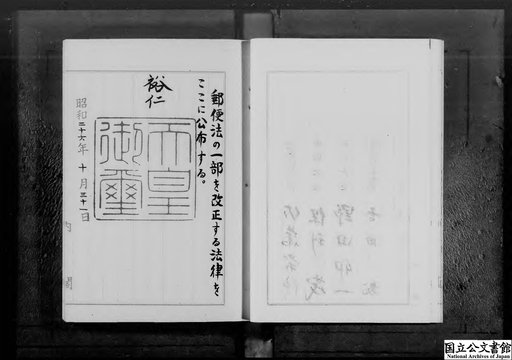 郵便法の一部を改正する法律を
ここに公布する。
裕仁
天皇
御璽
昭和二十六年十月三十一日
内閣
国立公文書館
National Archives of Japan